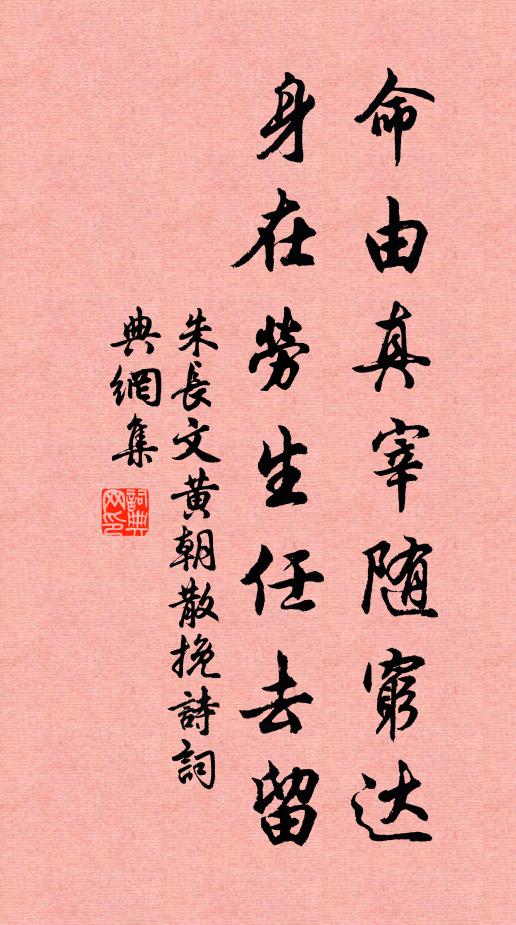 命由真宰随窮达
身在勞生任去留
朱長文黄朝散挽詩詞
典網集
詞典網印